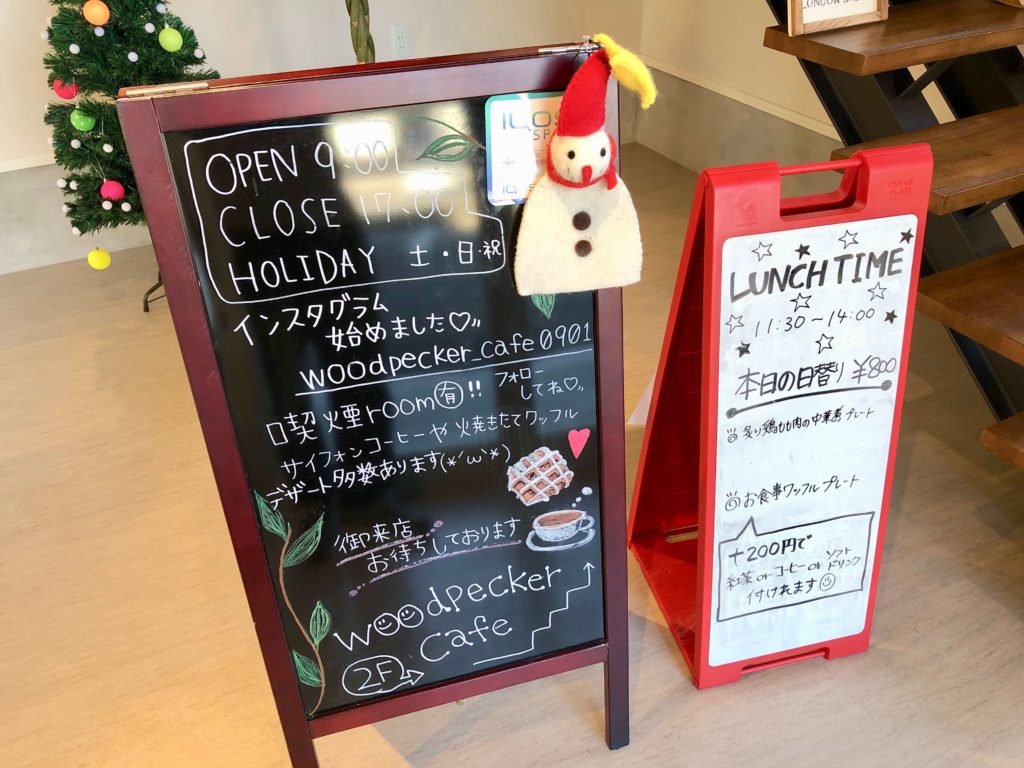 OPEN 9:00
CLOSE 17:00
HOLIDAY 土・日・祝
インスタグラム
始めました♡〃
woodpecker_cafe0901
フォロー
してね♡〃
喫煙room有!!
サイフォンコーヒーや焼きたてワッフル
デザート多数あります(*´ω`*)
御来店
お待ちしております
woodpecker
cafe
2F→
IQOS
SPA
IQOS
LUNCH TIME
11:30～14:00
本日の日替り ¥800
炙り鶏もも肉の中華煮プレート
お食事ワッフルプレート
+200円で
紅茶orコーヒーorソフトドリンク
付けれます
STAND
PLATE
LONDON